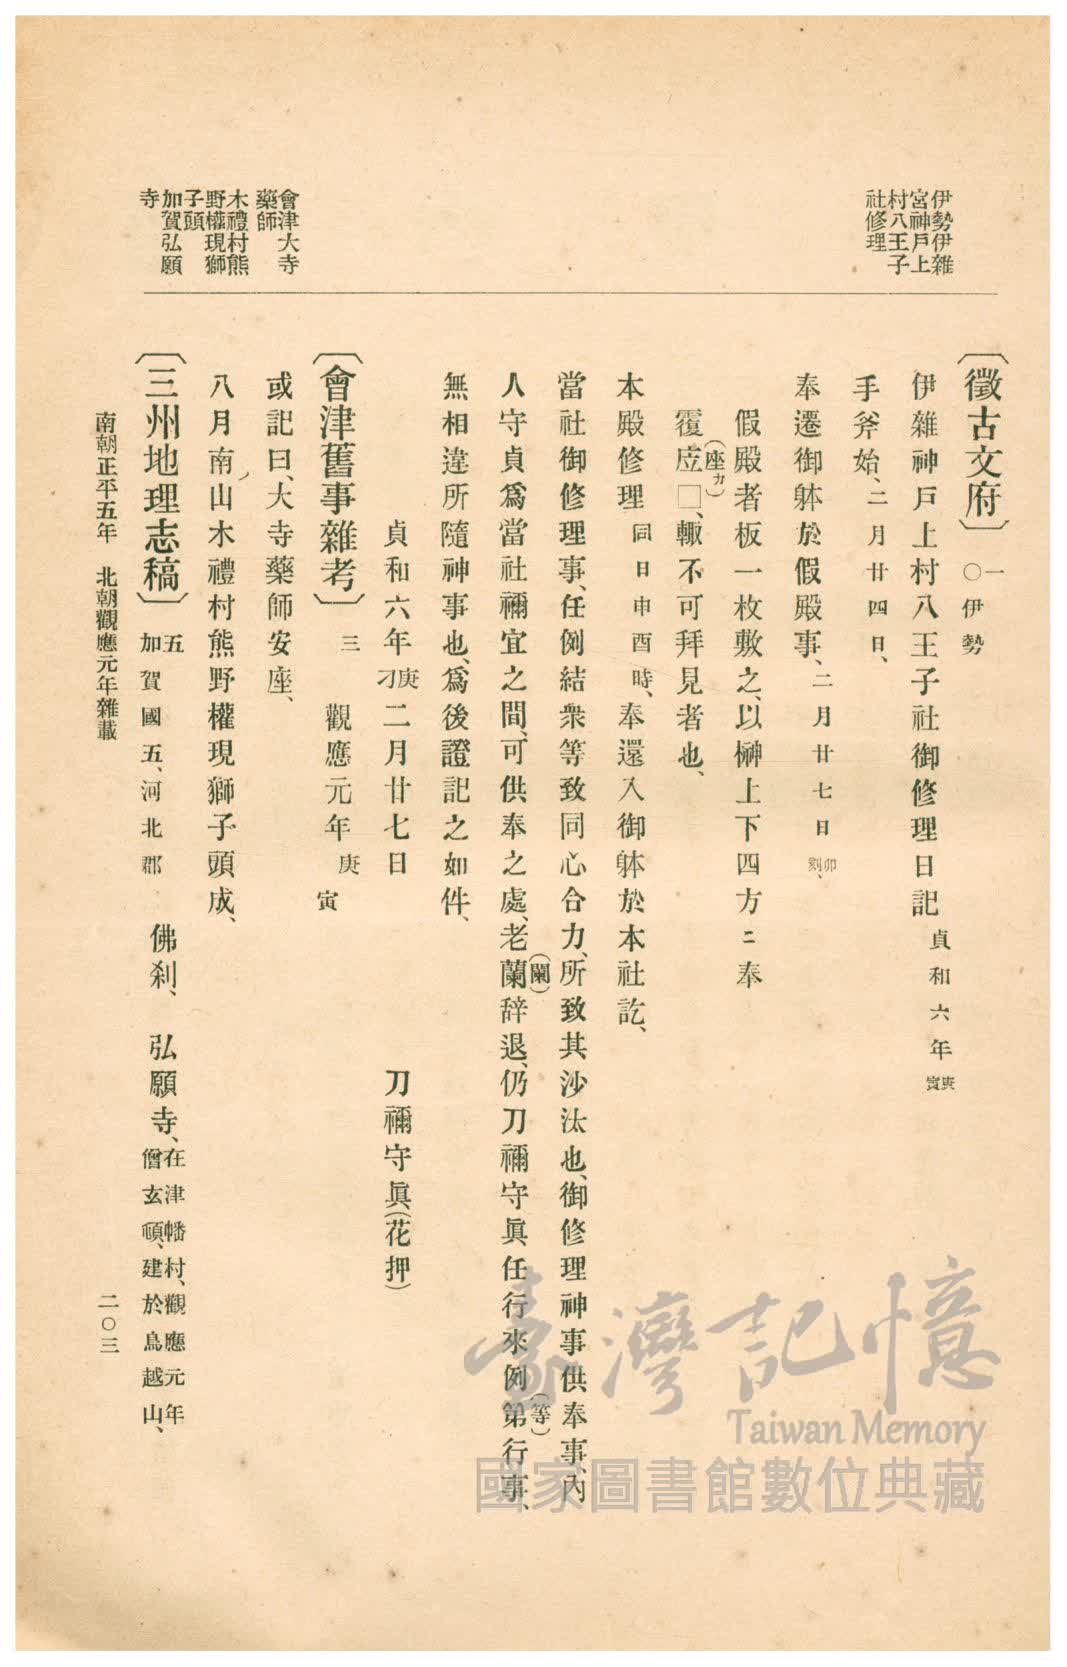 伊勢伊雜
宮神戸上
村八王子
社修理
會津大寺
藥師
木禮村熊
野權現獅
子頭
加賀弘願
寺
〔徵古文府〕一〇伊勢
伊雜神戸上村八王子社御修理日記貞和六年庚寅
手斧始、二月廿四日、
奉遷御躰於假殿事、二月廿七日卯刻、
假殿者板一枚敷之、以榊上下四方ニ奉
覆㡴(座カ)□、輙不可拜見者也、
本殿修理同日申酉時、奉還入御躰於本社訖、
當社御修理事、任例結衆等致同心合力、所致其沙汰也、御修理神事供奉事、內
人守貞爲當社禰宜之間、可供奉之處、老蘭(闌)辞退、仍刀禰守眞任行來例第(等)行事、
無相違所隨神事也、爲後證記之如件、
貞和六年庚刁二月廿七日　刀禰守眞(花押)
〔會津舊事雜考〕三　觀應元年庚寅
或記曰、大寺藥師安座、
八月南山木禮村熊野權現獅子頭成、
〔三州地理志稿〕五加賀國五、河北郡　佛刹、　弘願寺、在津幡村、觀應元年僧玄頓、建於鳥越山、
南朝正平五年　北朝觀應元年雜載　二〇三
臺灣記憶
Taiwan Memory
國家圖書館數位典藏